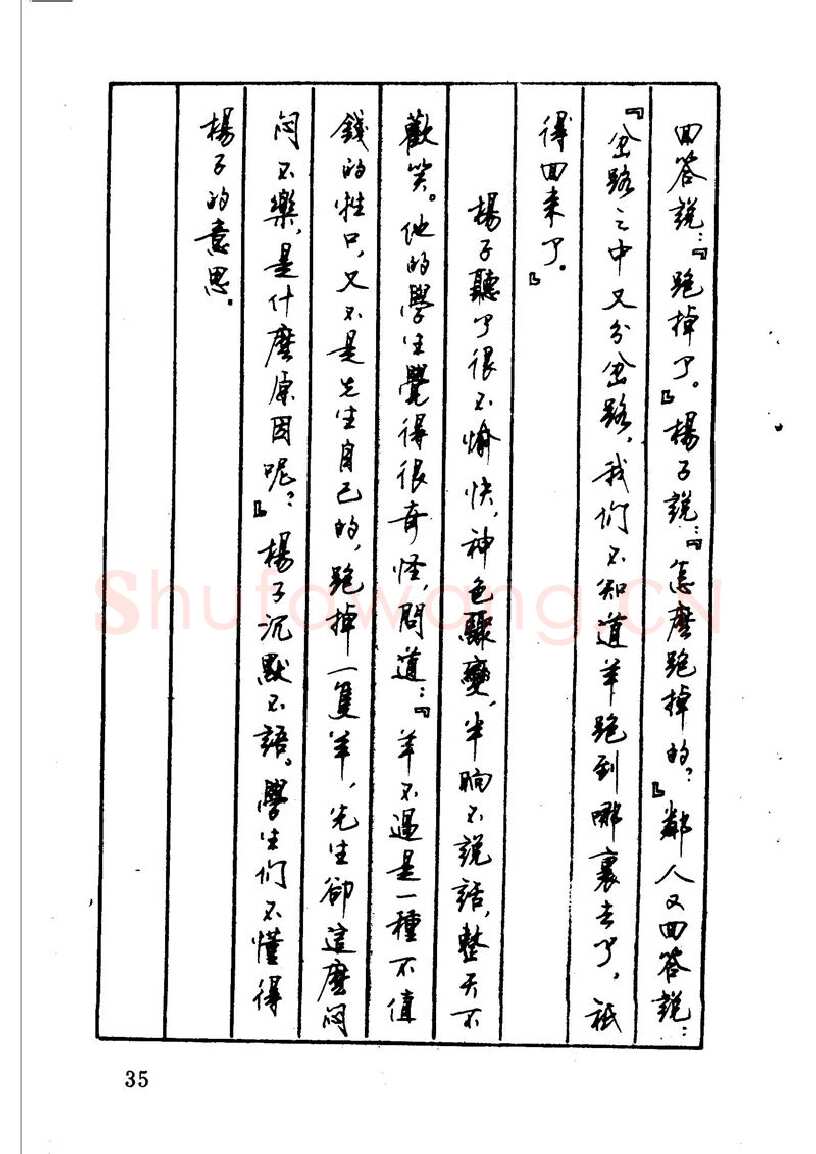 回答說：『跑掉了。』楊子說：『怎麼跑掉的？』鄰人又回答說：
『岔路之中又分岔路，我們不知道羊跑到哪裏去了，祇
得回來了。』
楊子聽了很不愉快，神色驟變，半晌不說話，整天不
歡笑。他的學生覺得很奇怪，問道：『羊不過是一種不值
錢的牲口，又不是先生自己的，跑掉一隻羊，先生卻這麼悶
悶不樂，是什麼原因呢？』楊子沉默不語。學生們不懂得
楊子的意思。
Shufawang.CN
35